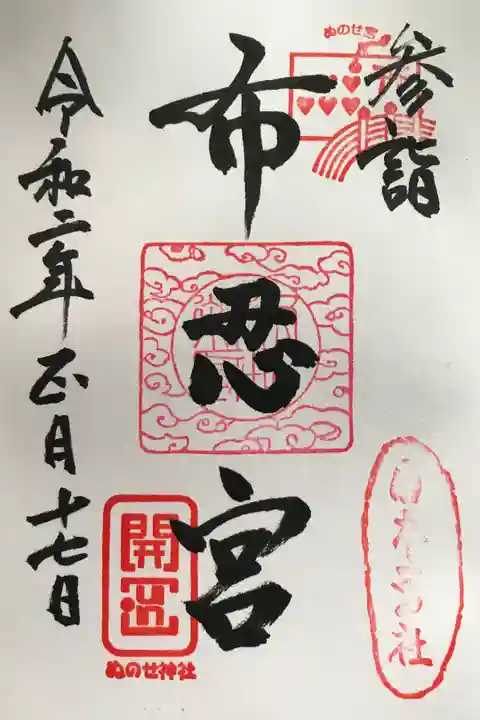 参詣
ぬのせ宮
布忍宮
開運
ぬのせ神社
令和二年正月十七日